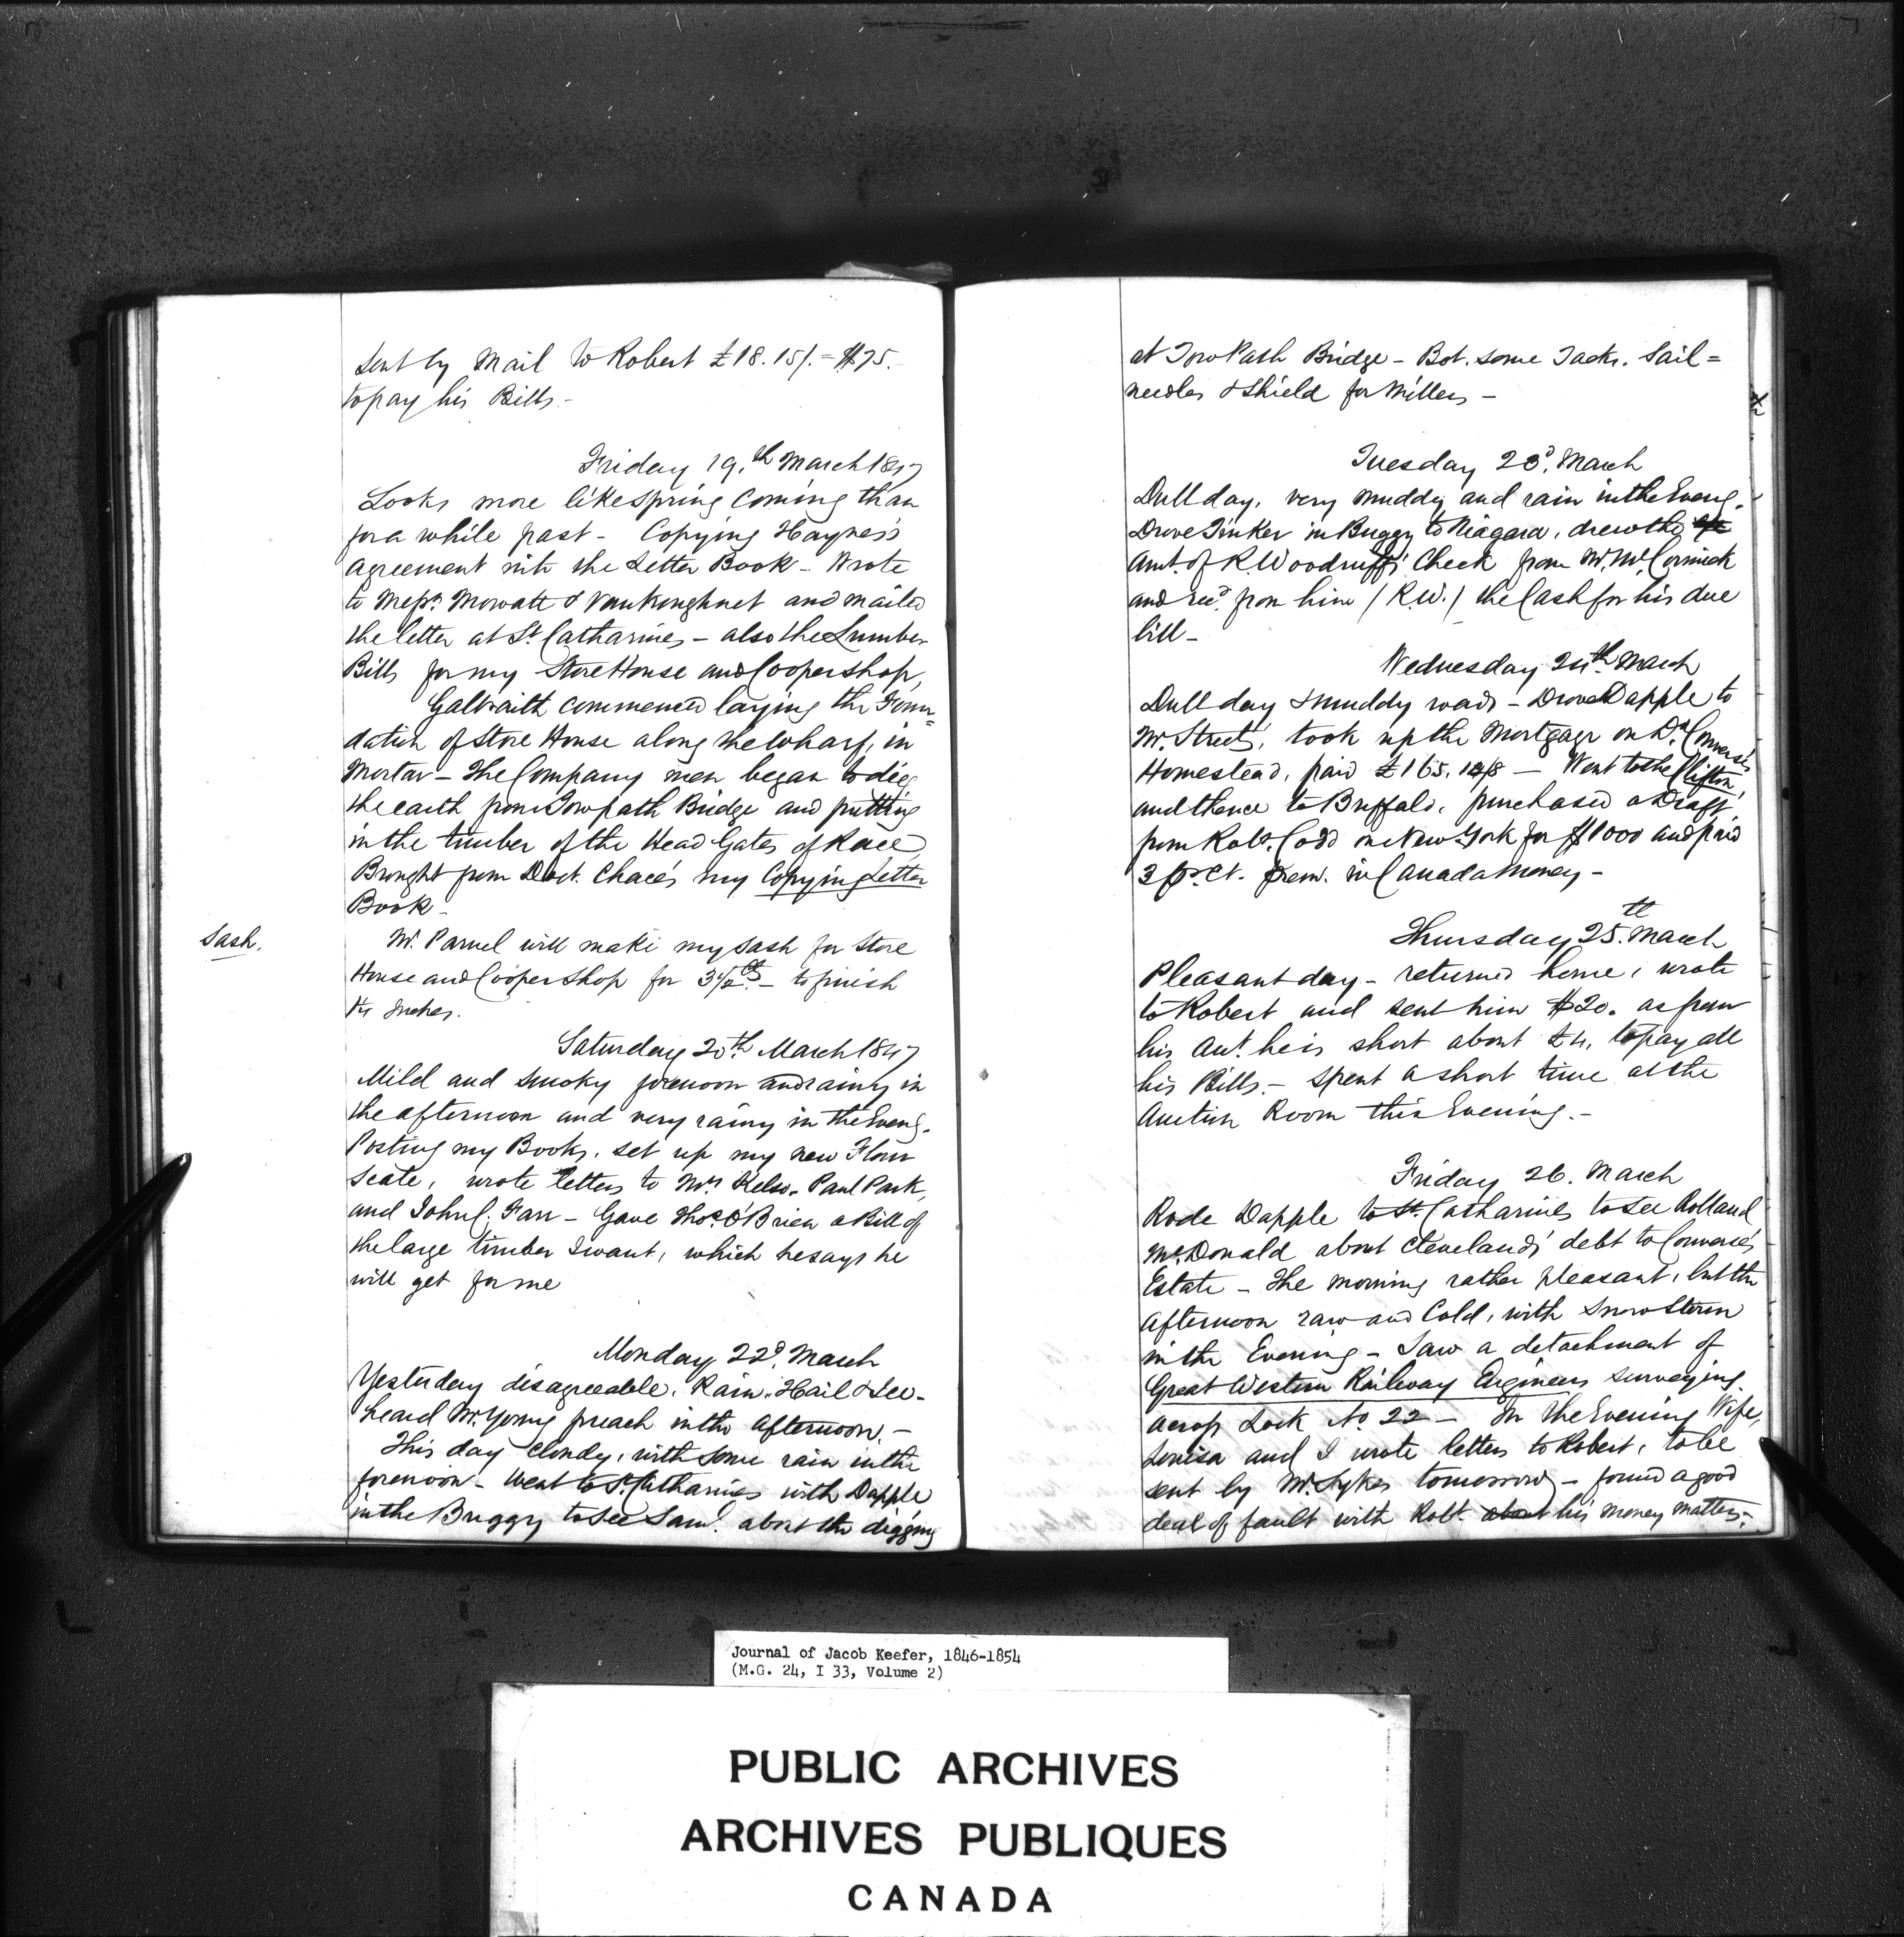 Sent by Mail to Robert £18.15/. = $75.
to pay his Bills.-
Friday 19.th March 1847
Looks more like spring coming than
for a while past - Copying Haynes's
agreement into the Letter Book - Wrote
to Messrs. Mowatt & VanKoughnet and mailed
the letter at St. Catharines - also the Lumber
Bills for my Store House and Coopershop,
Galbraith commenced laying the Foun=
dation of Store House along the Wharf, in
Mortar - The Company men began to dig
the earth from Towpath Bridge and putting
in the timber of the Head Gates of Race
Brought from Doct. Chace's my Copying Letter
Book -
Sash.
Mr. Parnel will make my sash for Store
House and Cooper Shop for 3 1/2 cts - to finish
Inches.
Saturday 20th March 1847
Mild and smoky forenoon and rainy in
the afternoon and very rainy in the Eveng.
Posting my Books, set up my new Flour
Scale, wrote letters to Mrs Kelso, Paul Park,
and John C. Farr - Gave Thos. O'Brien a Bill of
the large timber I want, which he says he
will get for me
Monday 22d. March
Yesterday disagreeable, Rain, Hail & Ice -
heard Mr. Young preach in the afternoon. -
This day Cloudy, with some rain in the
forenoon - Went to St. Catharines with Dapple
in the Buggy to see Saml. about the digging
at Tow Path Bridge - Bot. some Tacks, Sail=
needles & Shield for Millers -
Tuesday 23d. March
Dull day, very muddy and rain in the Eveng.
Drove Tinker in Buggy to Niagara, drew the
Amt. of R. Woodruff's Check from W. McCormick
and recd. from him (R.W.) the Cash for his due
bill -
Wednesday 24th March
Dull day & muddy roads - Drove Dapple to
Mr. Street's, took up the Mortgage on Dr. Converse's
Homestead, paid £165.12/8 - Went to the Clifton,
and thence to Buffalo, purchased a Draft
from Robt. Codd on New York for $1000 and paid
3 pr. Ct. prem. in Canada Money -
Thursday 25.th March
Pleasant day - returned home, wrote
to Robert and sent him $20. as from
his Act. he is short about £4, to pay all
his Bills. - Spent a short time at the
Auction Room this Evening. -
Friday 26. March
Rode Dapple to St. Catharines to see Rolland
McDonald about Cleveland's debt to Converse's
Estate - The morning rather pleasant, but the
afternoon raw and Cold, with Snow Storm
in the Evening - Saw a detachment of
Great Western Railway Engineers surveying
across Lock No 22 - In the Evening Wife,
Louisa and I wrote letters to Robert, to be
sent by Mr. Sykes tomorrow - found a good
deal of fault with Robt. about his money matters. -
Journal of Jacob Keefer, 1846-1854
(M.G. 24, I 33, Volume 2)
PUBLIC ARCHIVES
ARCHIVES PUBLIQUES
CANADA